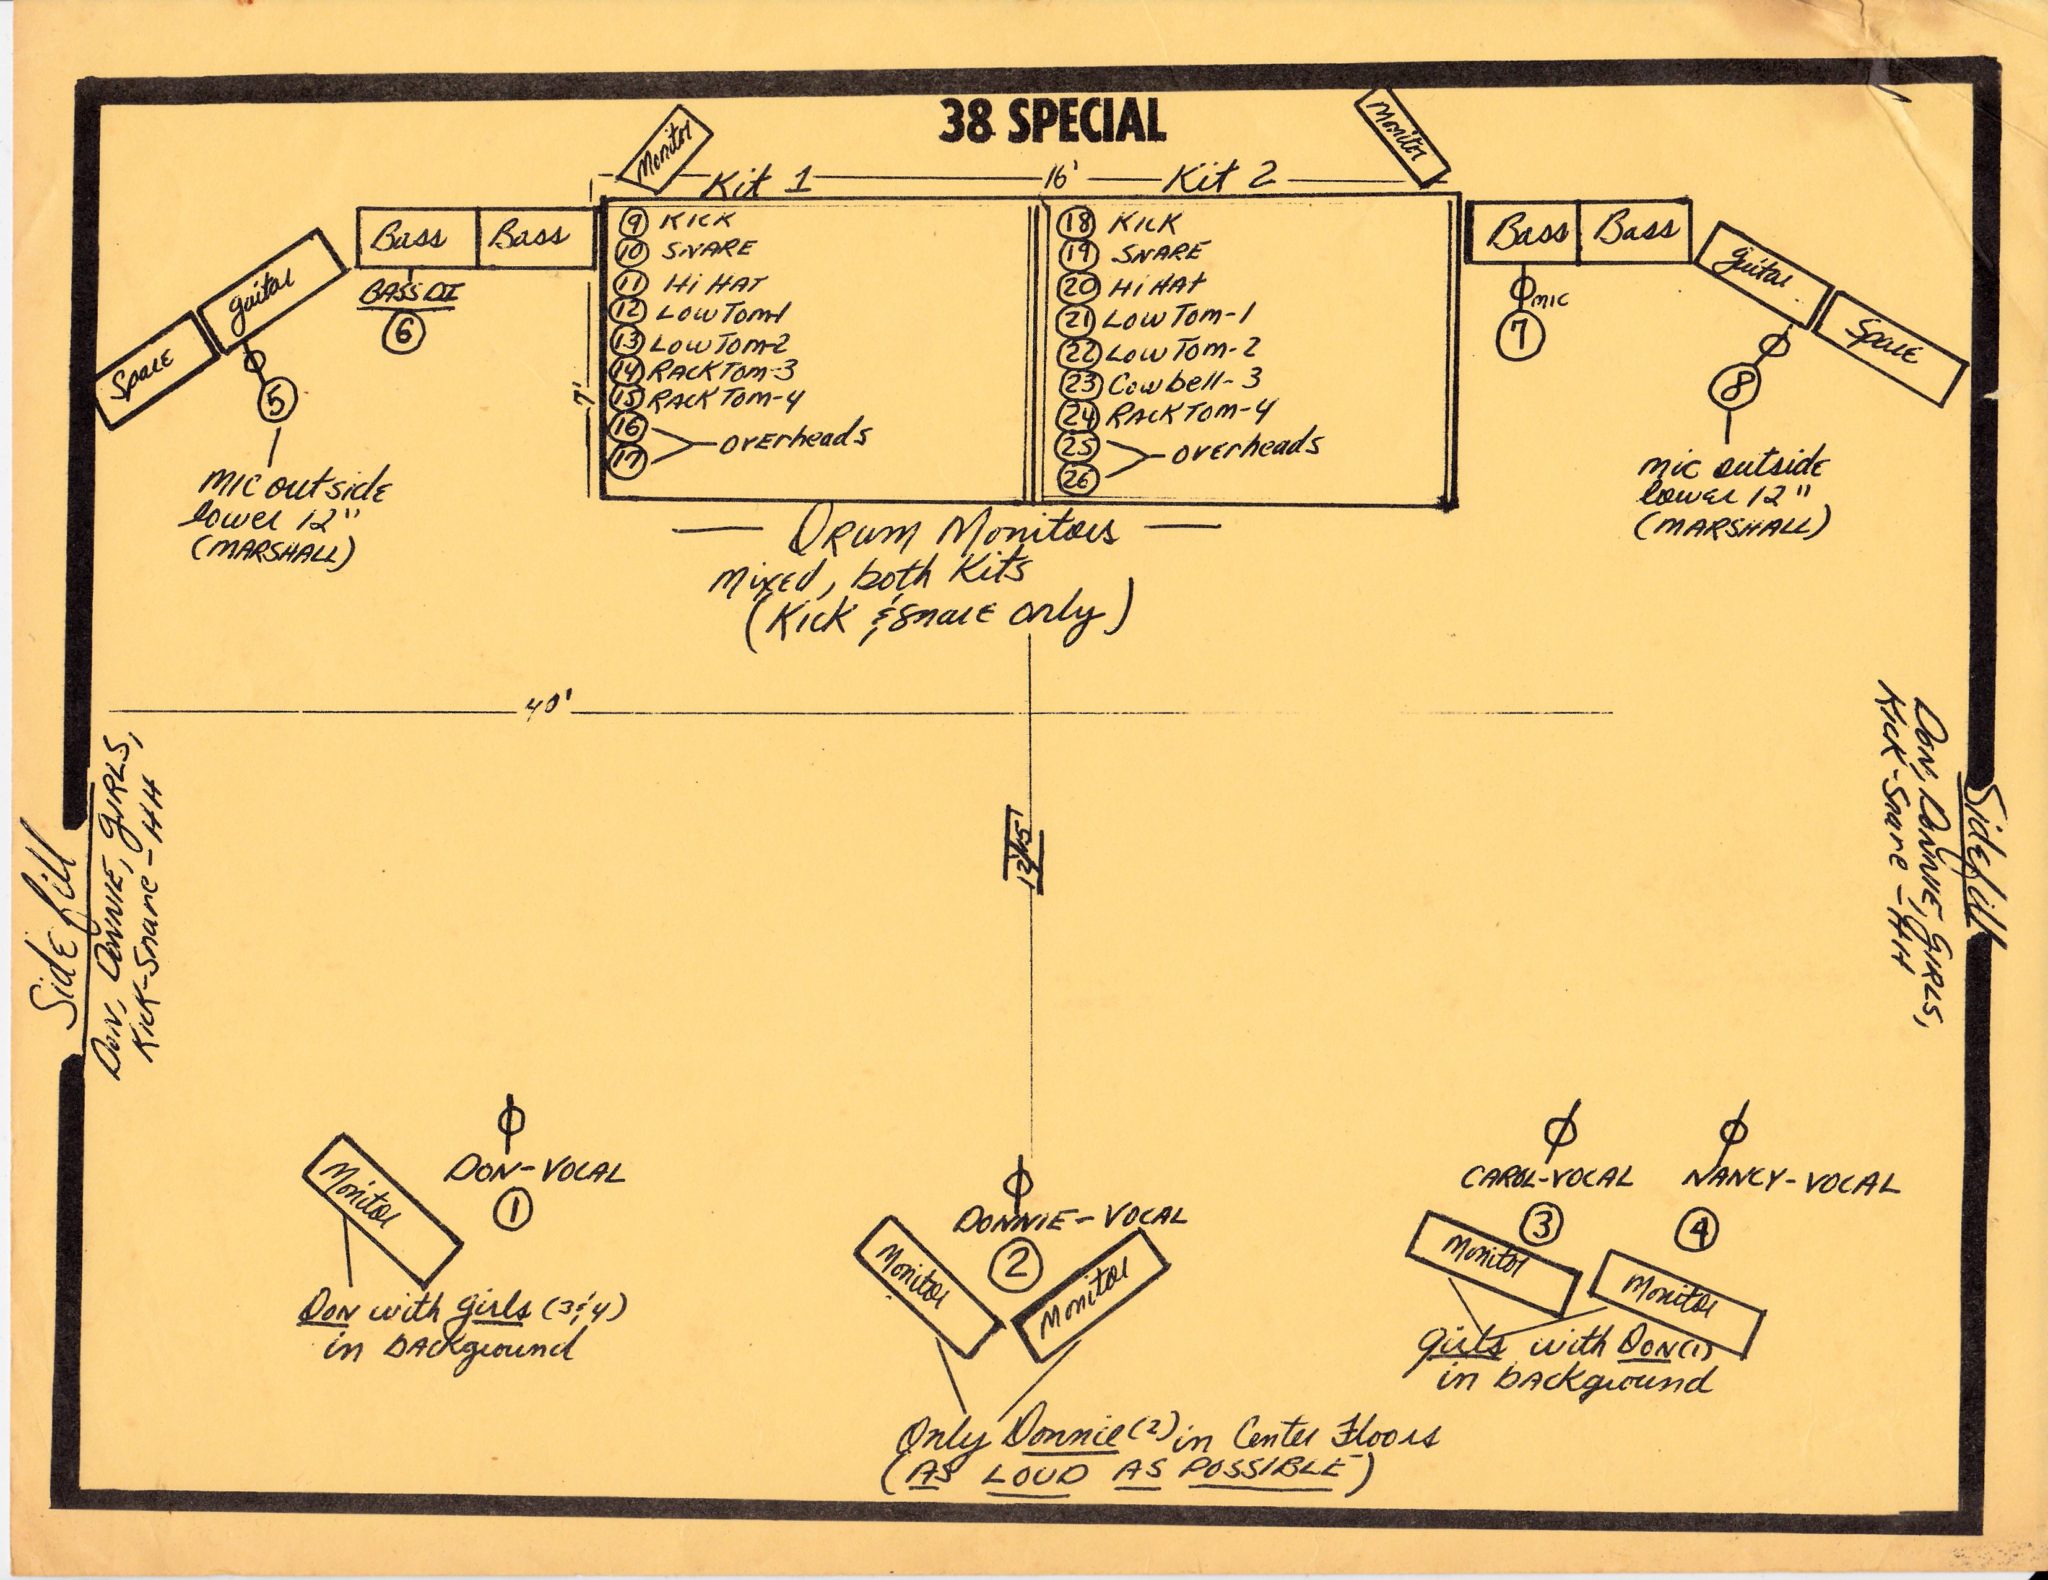 38 SPECIAL
Monitor
Monitor
Kit 1
16'
Kit 2
Bass
Bass
Bass
Bass
Guitar
Guitar
Spare
Spare
BASS DI
6
MIC
7
5
8
7'
9 KICK
10 SNARE
11 Hi HAT
12 LOW TOM-1
13 LOW TOM-2
14 RACK TOM-3
15 RACK TOM-4
16
17
OVERheads
18 KICK
19 SNARE
20 Hi HAT
21 LOW TOM-1
22 LOW TOM-2
23 Cowbell-3
24 RACK TOM-4
25
26
OVERheads
MIC outside
lower 12"
(MARSHALL)
mic outside
lower 12"
(MARSHALL)
— DRUM Monitors —
Mixed, both Kits
(KICK & snare only)
40'
Sidefill
DON, DONNIE, GIRLS,
KICK-Snare-HH
Sidefill
DON, DONNIE, GIRLS,
KICK-Snare-HH
DON-VOCAL
1
Monitor
DON with girls (3&4)
in background
DONNIE-VOCAL
2
Monitor
Monitor
Only Donnie (2) in Center Floors
(AS LOUD AS POSSIBLE)
CAROL-VOCAL
3
NANCY-VOCAL
4
Monitor
Monitor
Girls with DON (1)
in background